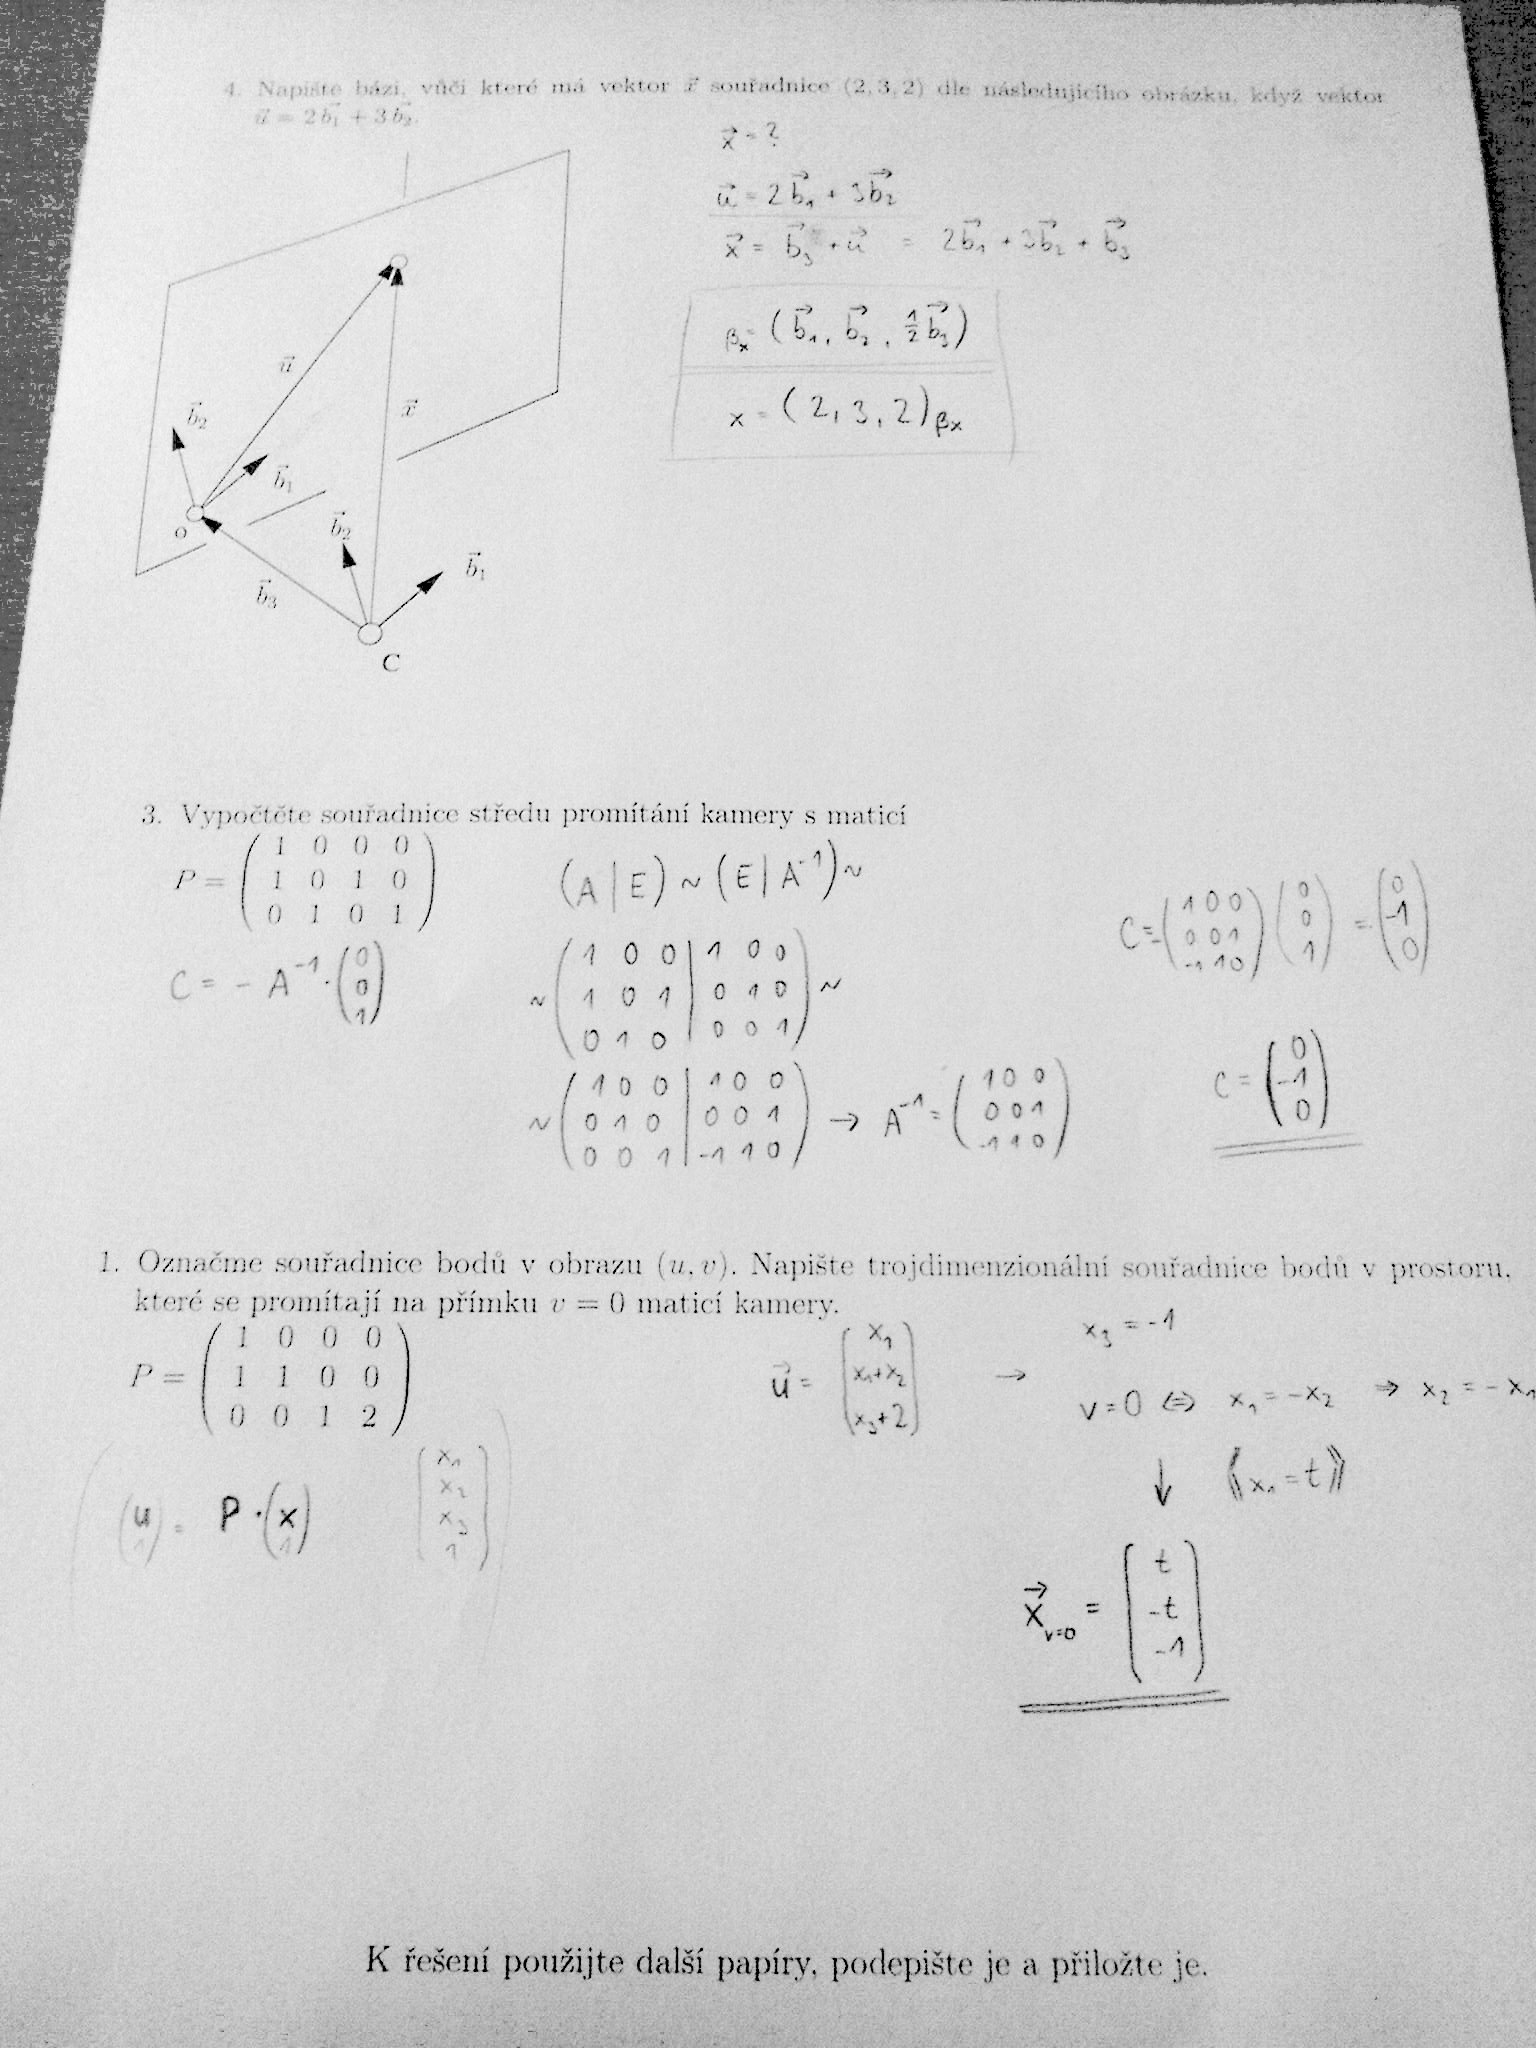 4. Napište bázi, vůči které má vektor x⃗ souřadnice (2, 3, 2) dle následujícího obrázku, když vektor
u⃗ = 2b⃗₁ + 3b⃗₂.
x⃗ = ?
u⃗ = 2b⃗₁ + 3b⃗₂
x⃗ = b⃗₃ + u⃗ = 2b⃗₁ + 3b⃗₂ + b⃗₃
βₓ = (b⃗₁, b⃗₂, ½b⃗₃)
x = (2, 3, 2)βₓ
u⃗
x⃗
b⃗₂
b⃗₁
o
b⃗₂
b⃗₁
b⃗₃
C
3. Vypočtěte souřadnice středu promítání kamery s maticí
P = ( 1 0 0 0
1 0 1 0
0 1 0 1 )
C = - A⁻¹ · ( 0
0
1 )
(A | E) ~ (E | A⁻¹) ~
~ ( 1 0 0 | 1 0 0
1 0 1 | 0 1 0
0 1 0 | 0 0 1 ) ~
~ ( 1 0 0 | 1 0 0
0 1 0 | 0 0 1
0 0 1 | -1 1 0 ) → A⁻¹ = ( 1 0 0
0 0 1
-1 1 0 )
C = - ( 1 0 0
0 0 1
-1 1 0 ) ( 0
0
1 ) = ( 0
-1
0 )
C = ( 0
-1
0 )
1. Označme souřadnice bodů v obrazu (u, v). Napište trojdimenzionální souřadnice bodů v prostoru,
které se promítají na přímku v = 0 maticí kamery.
P = ( 1 0 0 0
1 1 0 0
0 0 1 2 )
( u
1 ) = P · ( x
1 )
( x₁
x₂
x₃
1 )
u⃗ = ( x₁
x₁+x₂
x₃+2 ) →
x₃ = -1
v=0 ⇔ x₁ = -x₂ ⇒ x₂ = -x₁
↓ ⟪x₁ = t⟫
x⃗ᵥ₌₀ = ( t
-t
-1 )
K řešení použijte další papíry, podepište je a přiložte je.